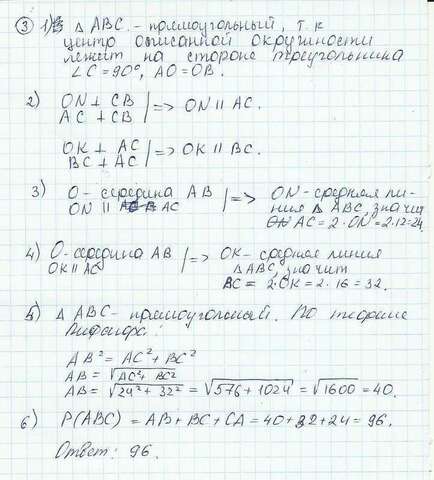 ③ 1) В △ ABC - прямоугольный, т.к
центр описанной окружности
лежит на стороне треугольника
∠C = 90°, AO = OB.
2) ON ⊥ CB
AC ⊥ CB | => ON || AC.
OK ⊥ AC
BC ⊥ AC | => OK || BC.
3) O - середина AB | => ON - средняя ли-
ON || AC ния △ ABC, значит
AC = 2 · ON = 2·12 = 24.
4) O - середина AB | => OK - средняя линия
OK || AC △ABC, значит
BC = 2·OK = 2·16 = 32.
5) △ ABC - прямоугольный. По теореме
Пифагора:
AB² = AC² + BC²
AB = √AC² + BC²
AB = √24² + 32² = √576 + 1024 = √1600 = 40.
6) P(ABC) = AB + BC + CA = 40 + 32 + 24 = 96.
Ответ: 96.